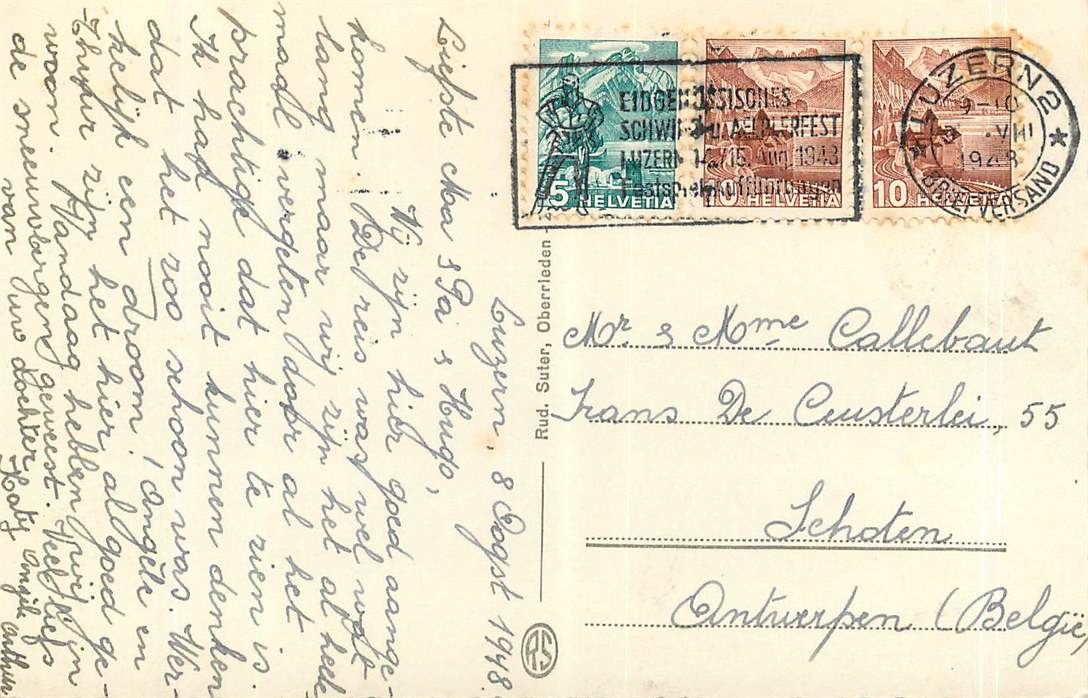 Luzern, 8 Oogst 1948
Liefste Ma & Pa & Hugo,
Wij zijn hier goed aange-
komen. De reis was wel wat
lang maar wij zijn het al heele-
maal vergeten door al het
prachtige dat hier te zien is.
Ik had nooit kunnen denken
dat het zoo schoon was. Wer-
kelijk een droom! Angèle en
Thuur zijn het hier al goed ge-
woon. Vandaag hebben wij in
de sneeuwbergen geweest. Veel liefs
van uwe dochter Katy Angèle Arthur
Rud. Suter, Oberrieden
RS
5 HELVETIA
10 HELVETIA
10 HELVETIA
EIDGENÖSSISCHES
SCHWING- u. AELPLERFEST
LUZERN 14./15. Aug. 1948
LUZERN 2
9-10
VIII
1948
BRIEFVERSAND
Mr & Mme Callebaut
Frans De Ceusterlei, 55
Schoten
Antwerpen (België)